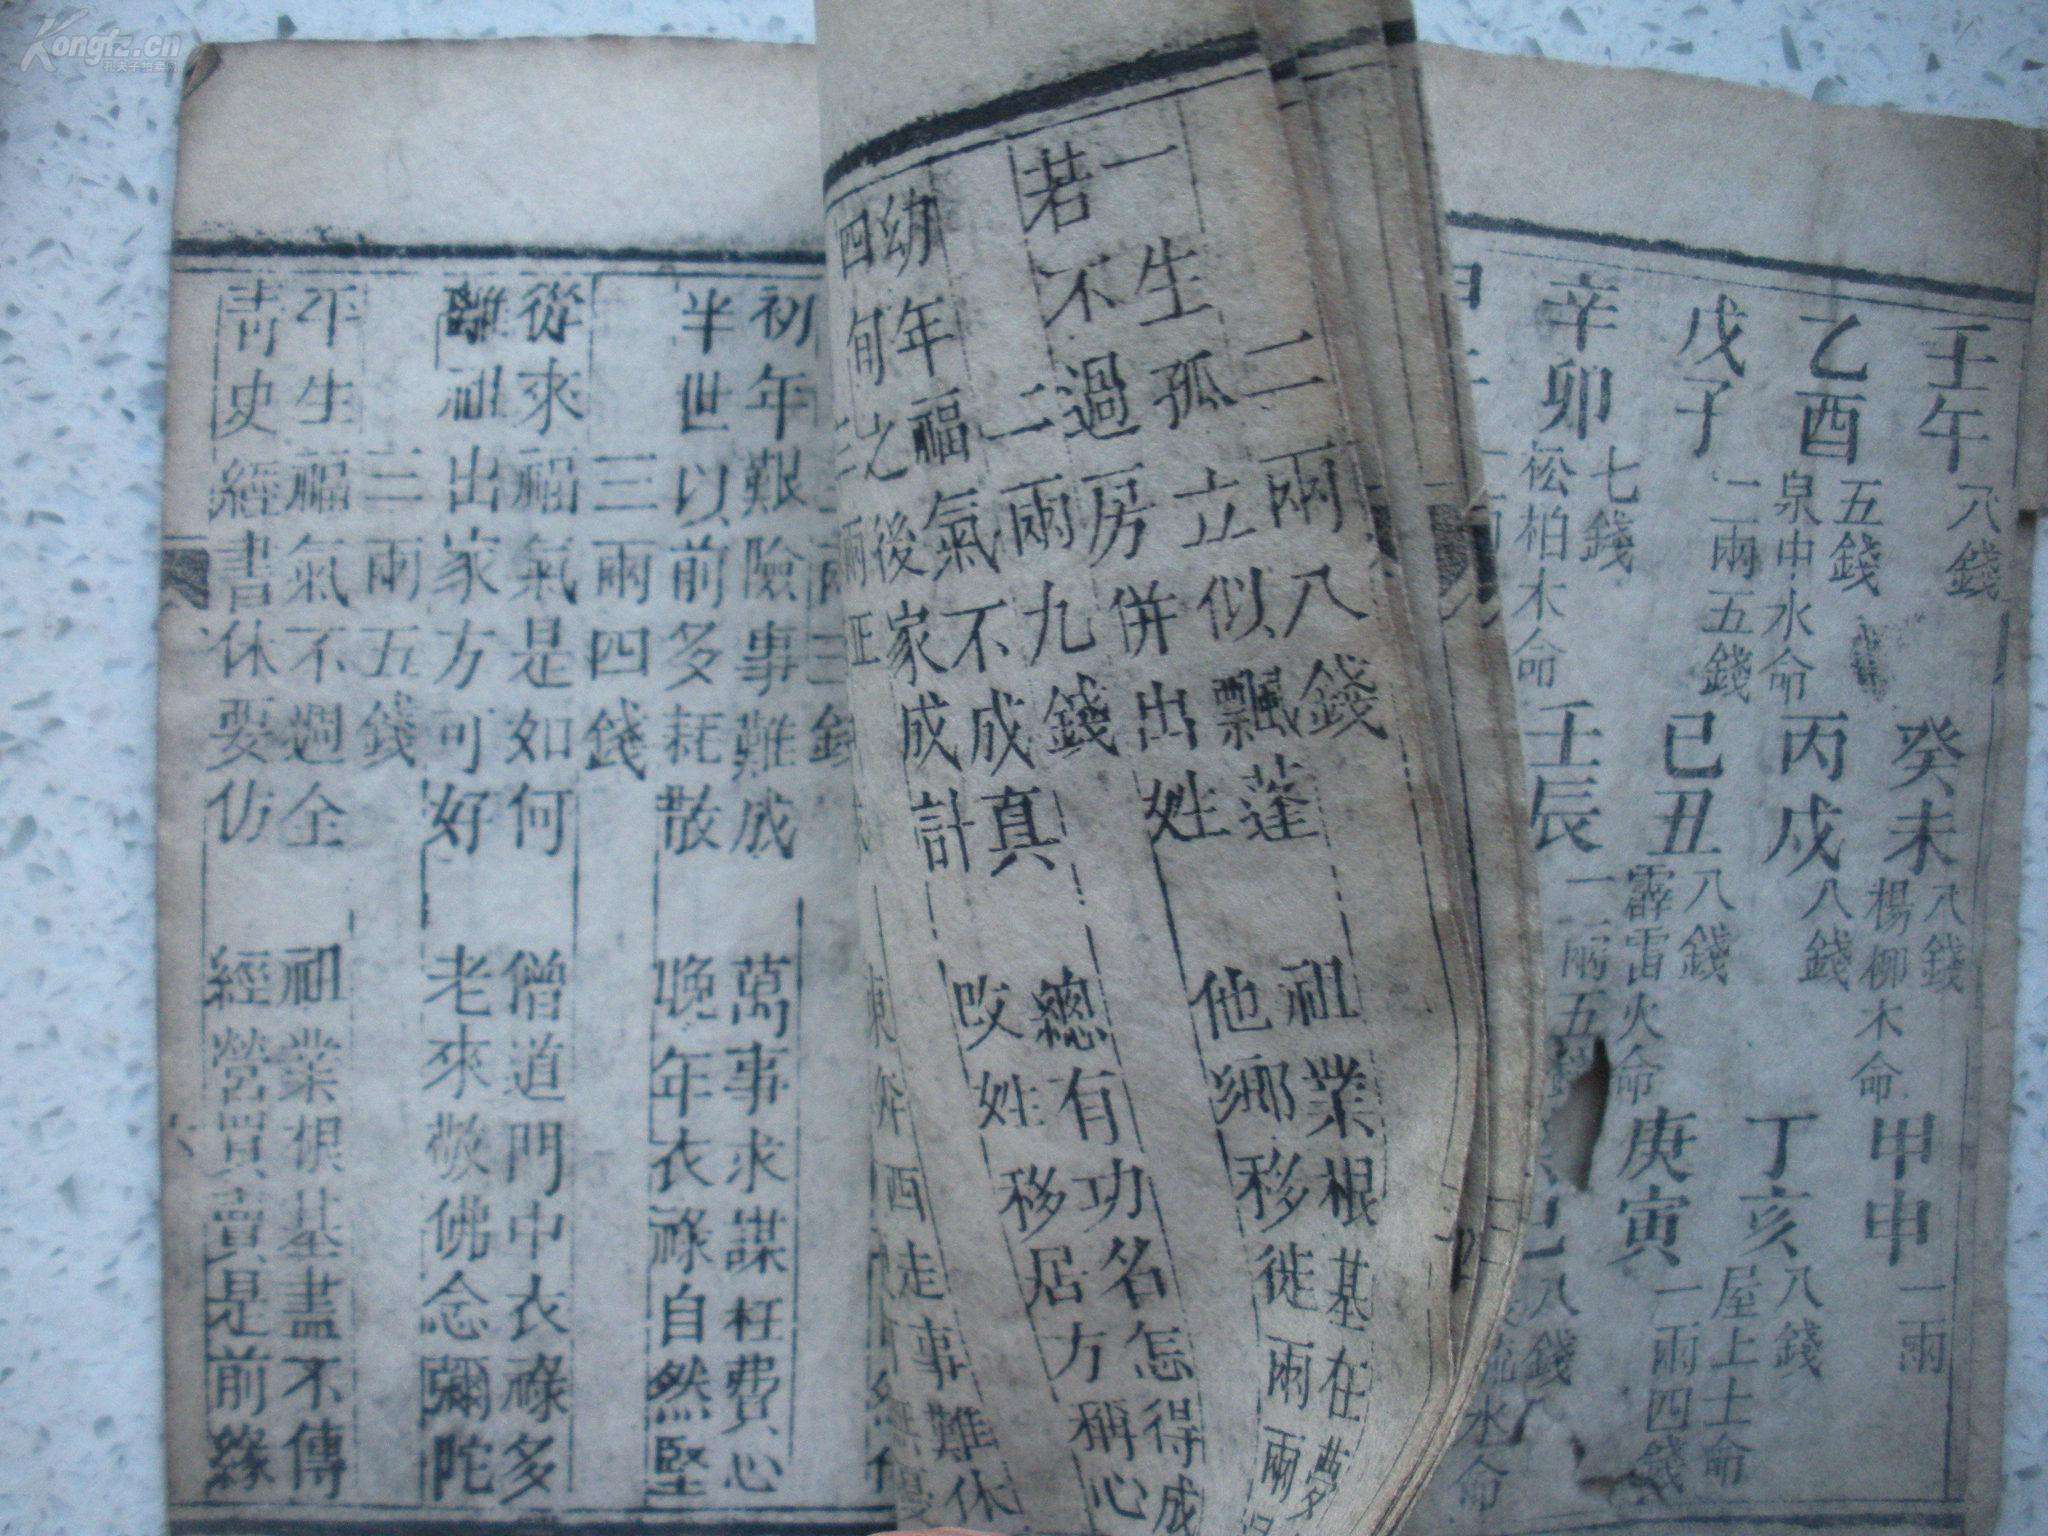 Kongfz.cn
壬午 八錢 癸未 八錢 楊柳木命 甲申 一兩
乙酉 五錢 泉中水命 丙戌 八錢 丁亥 八錢 屋上土命
戊子 一兩五錢 己丑 八錢 霹雷火命 庚寅 一兩四錢
辛卯 七錢 松柏木命 壬辰 一兩五 巳 八錢 流水命
二兩八錢
一生孤立似飄蓬 祖業根基在夢
若不過房併出姓 他鄉移徙兩兩
二兩九錢
幼年福氣不成真 總有功名怎得成
四旬之後家成計 改姓移居方稱心
三兩正
東奔西走事難休
三錢
初年艱險事難成 萬事求謀枉費心
半世以前多耗散 晚年衣祿自然堅
三兩四錢
從來福氣是如何 僧道門中衣祿多
離祖出家方可好 老來敬佛念彌陀
三兩五錢
平生福氣不週全 祖業根基盡不傳
青史經書休要仿 經營買賣是前緣